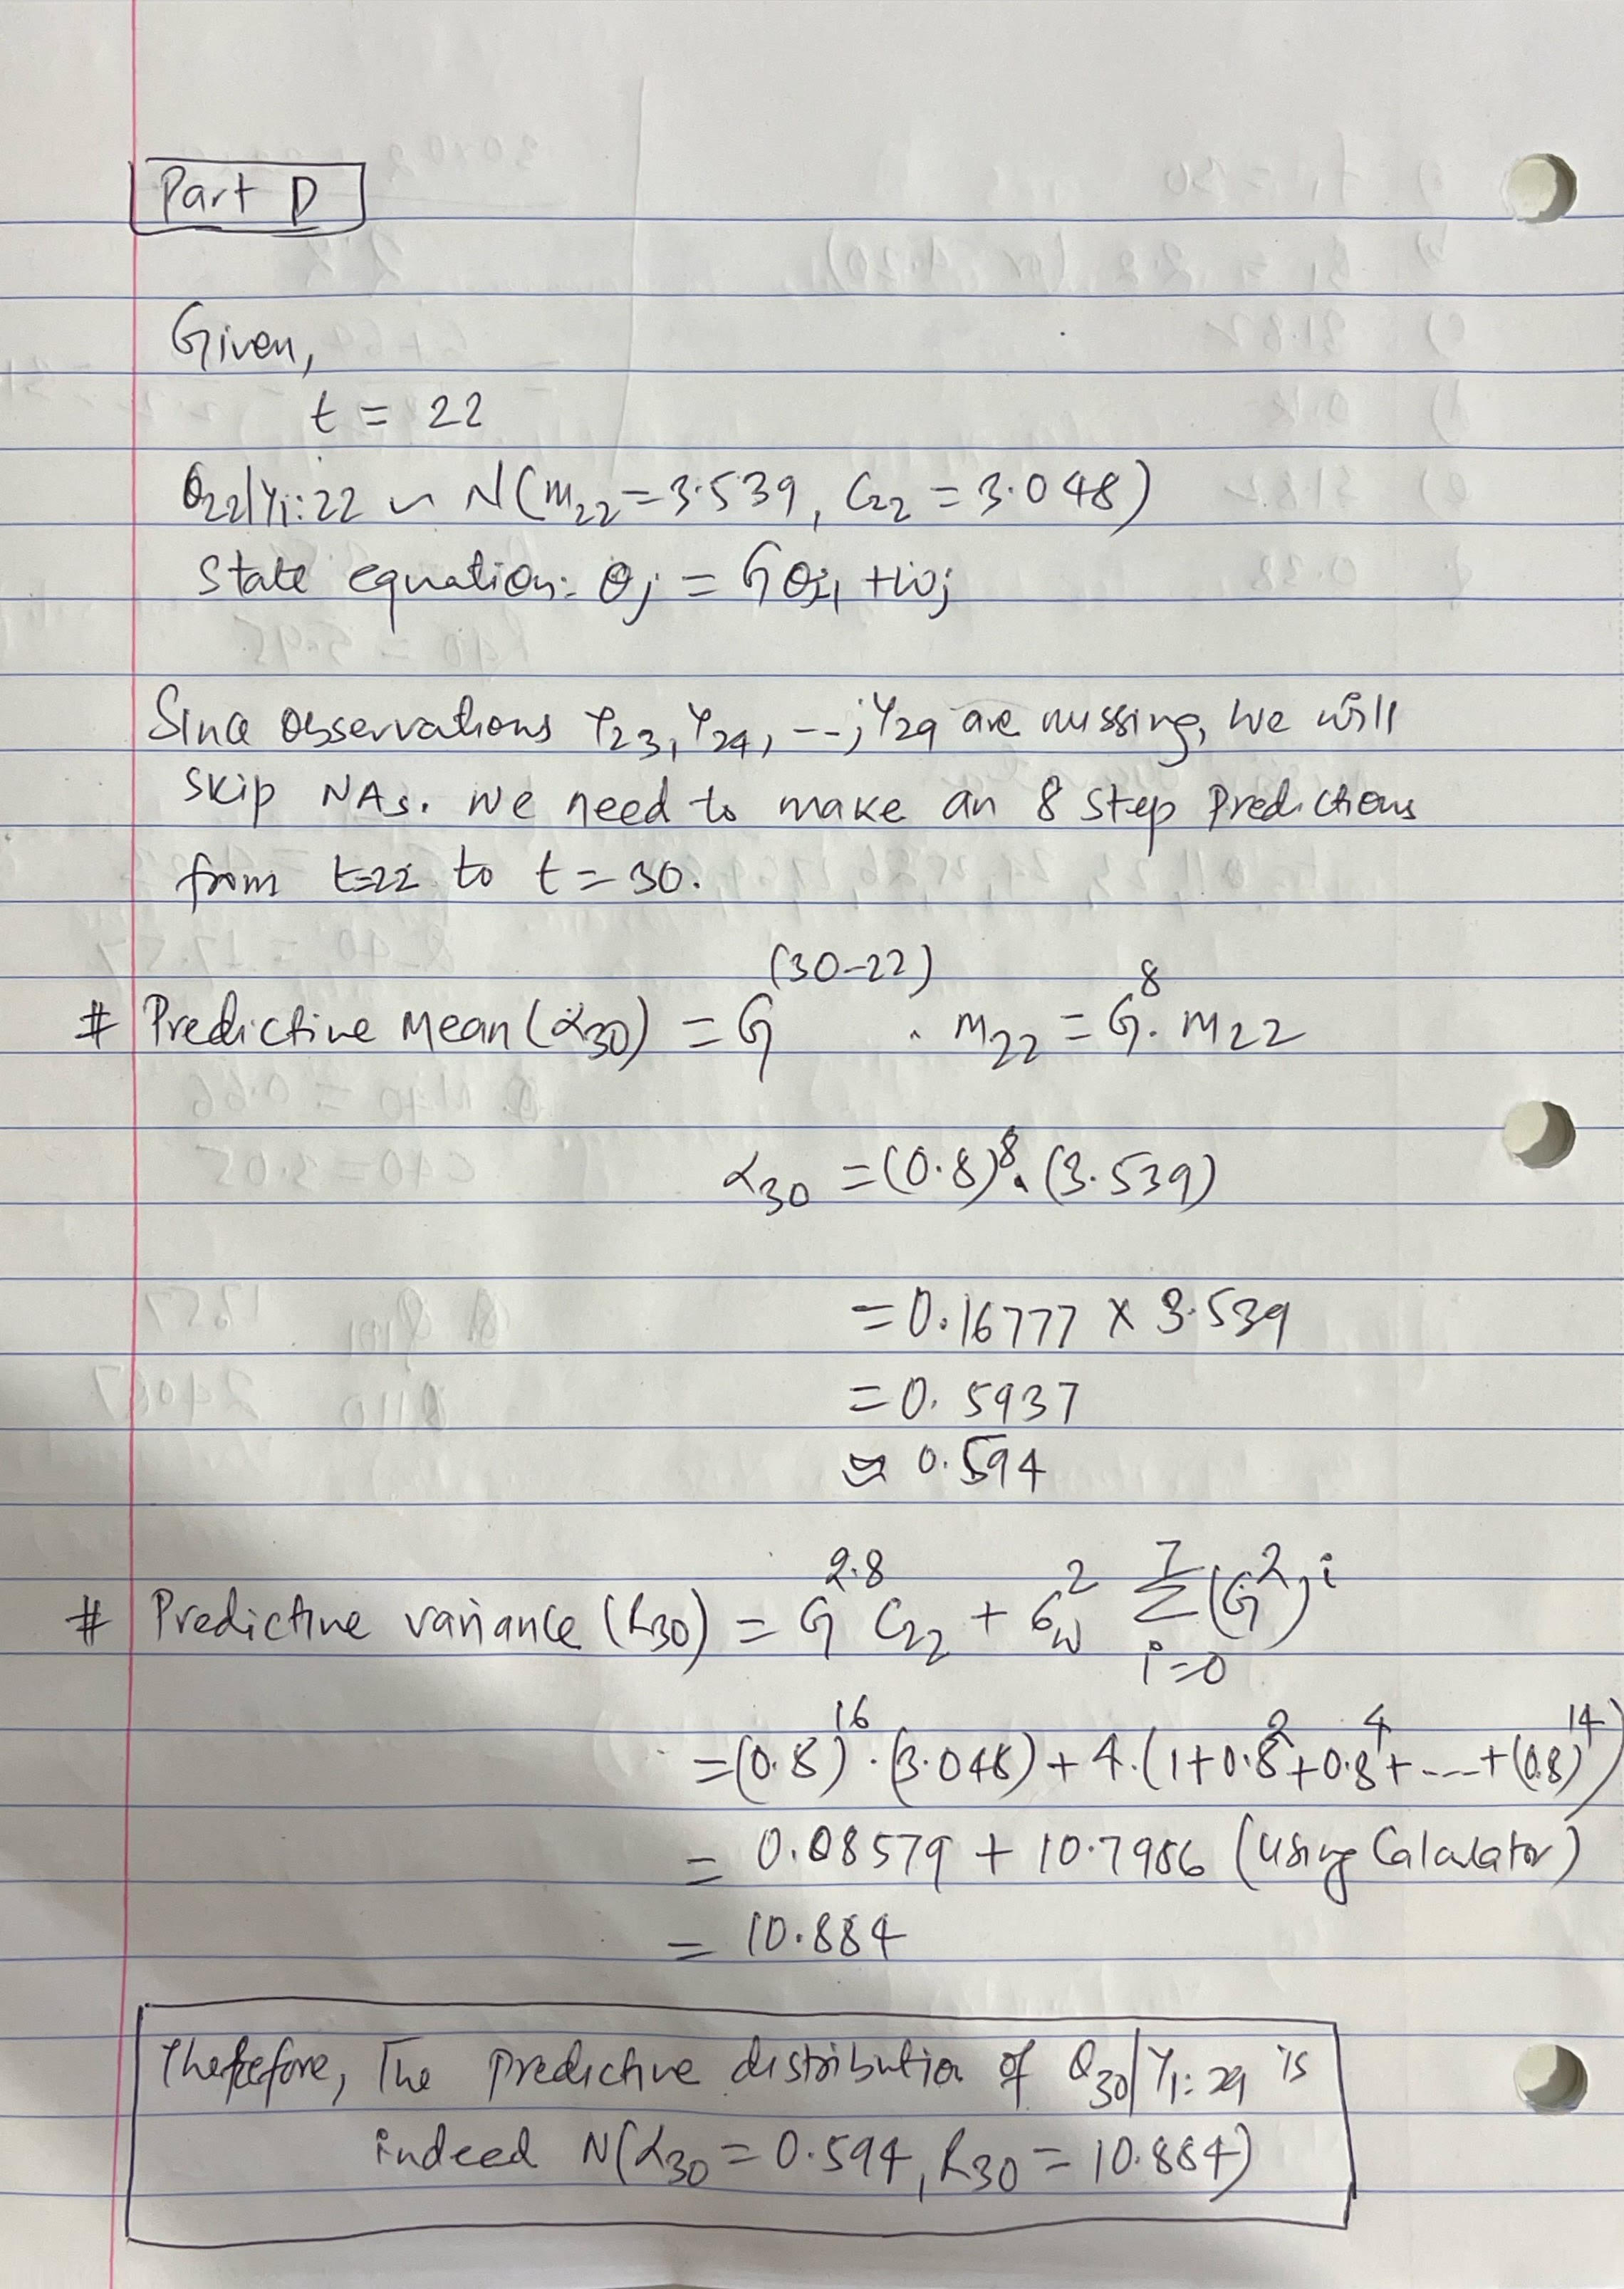 Part D
Given,
t = 22
θ₂₂|Y₁:₂₂ ~ N(m₂₂ = 3.539, C₂₂ = 3.048)
State equation: θⱼ = Gθⱼ₋₁ + wⱼ
Since observations Y₂₃, Y₂₄, --, Y₂₉ are missing, we will
skip NAs. We need to make an 8 step predictions
from t=22 to t = 30.
# Predictive Mean (α₃₀) = G⁽³⁰⁻²²⁾ . m₂₂ = G⁸. m₂₂
α₃₀ = (0.8)⁸. (3.539)
= 0.16777 × 3.539
= 0.5937
≈ 0.594
# Predictive variance (R₃₀) = G²·⁸ C₂₂ + σ²_w Σ⁷ᵢ₌₀ (G²)ⁱ
= (0.8)¹⁶ · (3.048) + 4.(1+0.8²+0.8⁴+----+(0.8)¹⁴)
= 0.08579 + 10.7986 (Using Calculator)
= 10.884
Therefore, The predictive distribution of θ₃₀|Y₁:₂₉ is
indeed N(α₃₀ = 0.594, R₃₀ = 10.884)